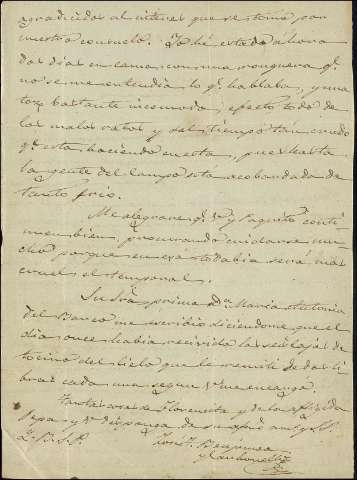 agradecidos al interes que se toma, por
nuestro consuelo. Yo hé estado ahora
dos dias en cama con una ronquera q.e
no se me entendia lo q.e hablaba, y una
tos bastante incomoda, efecto todo de
los malos ratos y del tiempo tan crudo
q.e está haciendo en esta, pues hasta
la gente del campo está acobardada de
tanto frio.
Me alegrare q.e V. y Paquito conti-
nuen bien, procurando cuidarse mu-
cho porque en esa todabia será mas
cruel el temporal.
Su Sra. prima D.a Maria Antonia
del Barco me escribio diciendome que el
dia once habia recivido las seis cajas de
tocino del cielo que le remití de dos li-
bras cada una segun V. me encarga.
Tantas cosas de Florencita y de la afligida
Pepa y V. disponga de su afmo. amigo S.S.
Q. B. S. M.